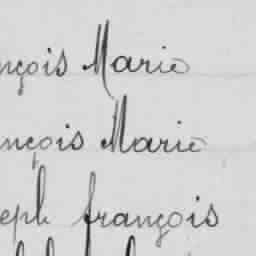 nçois Marie
nçois Marie
eph françois